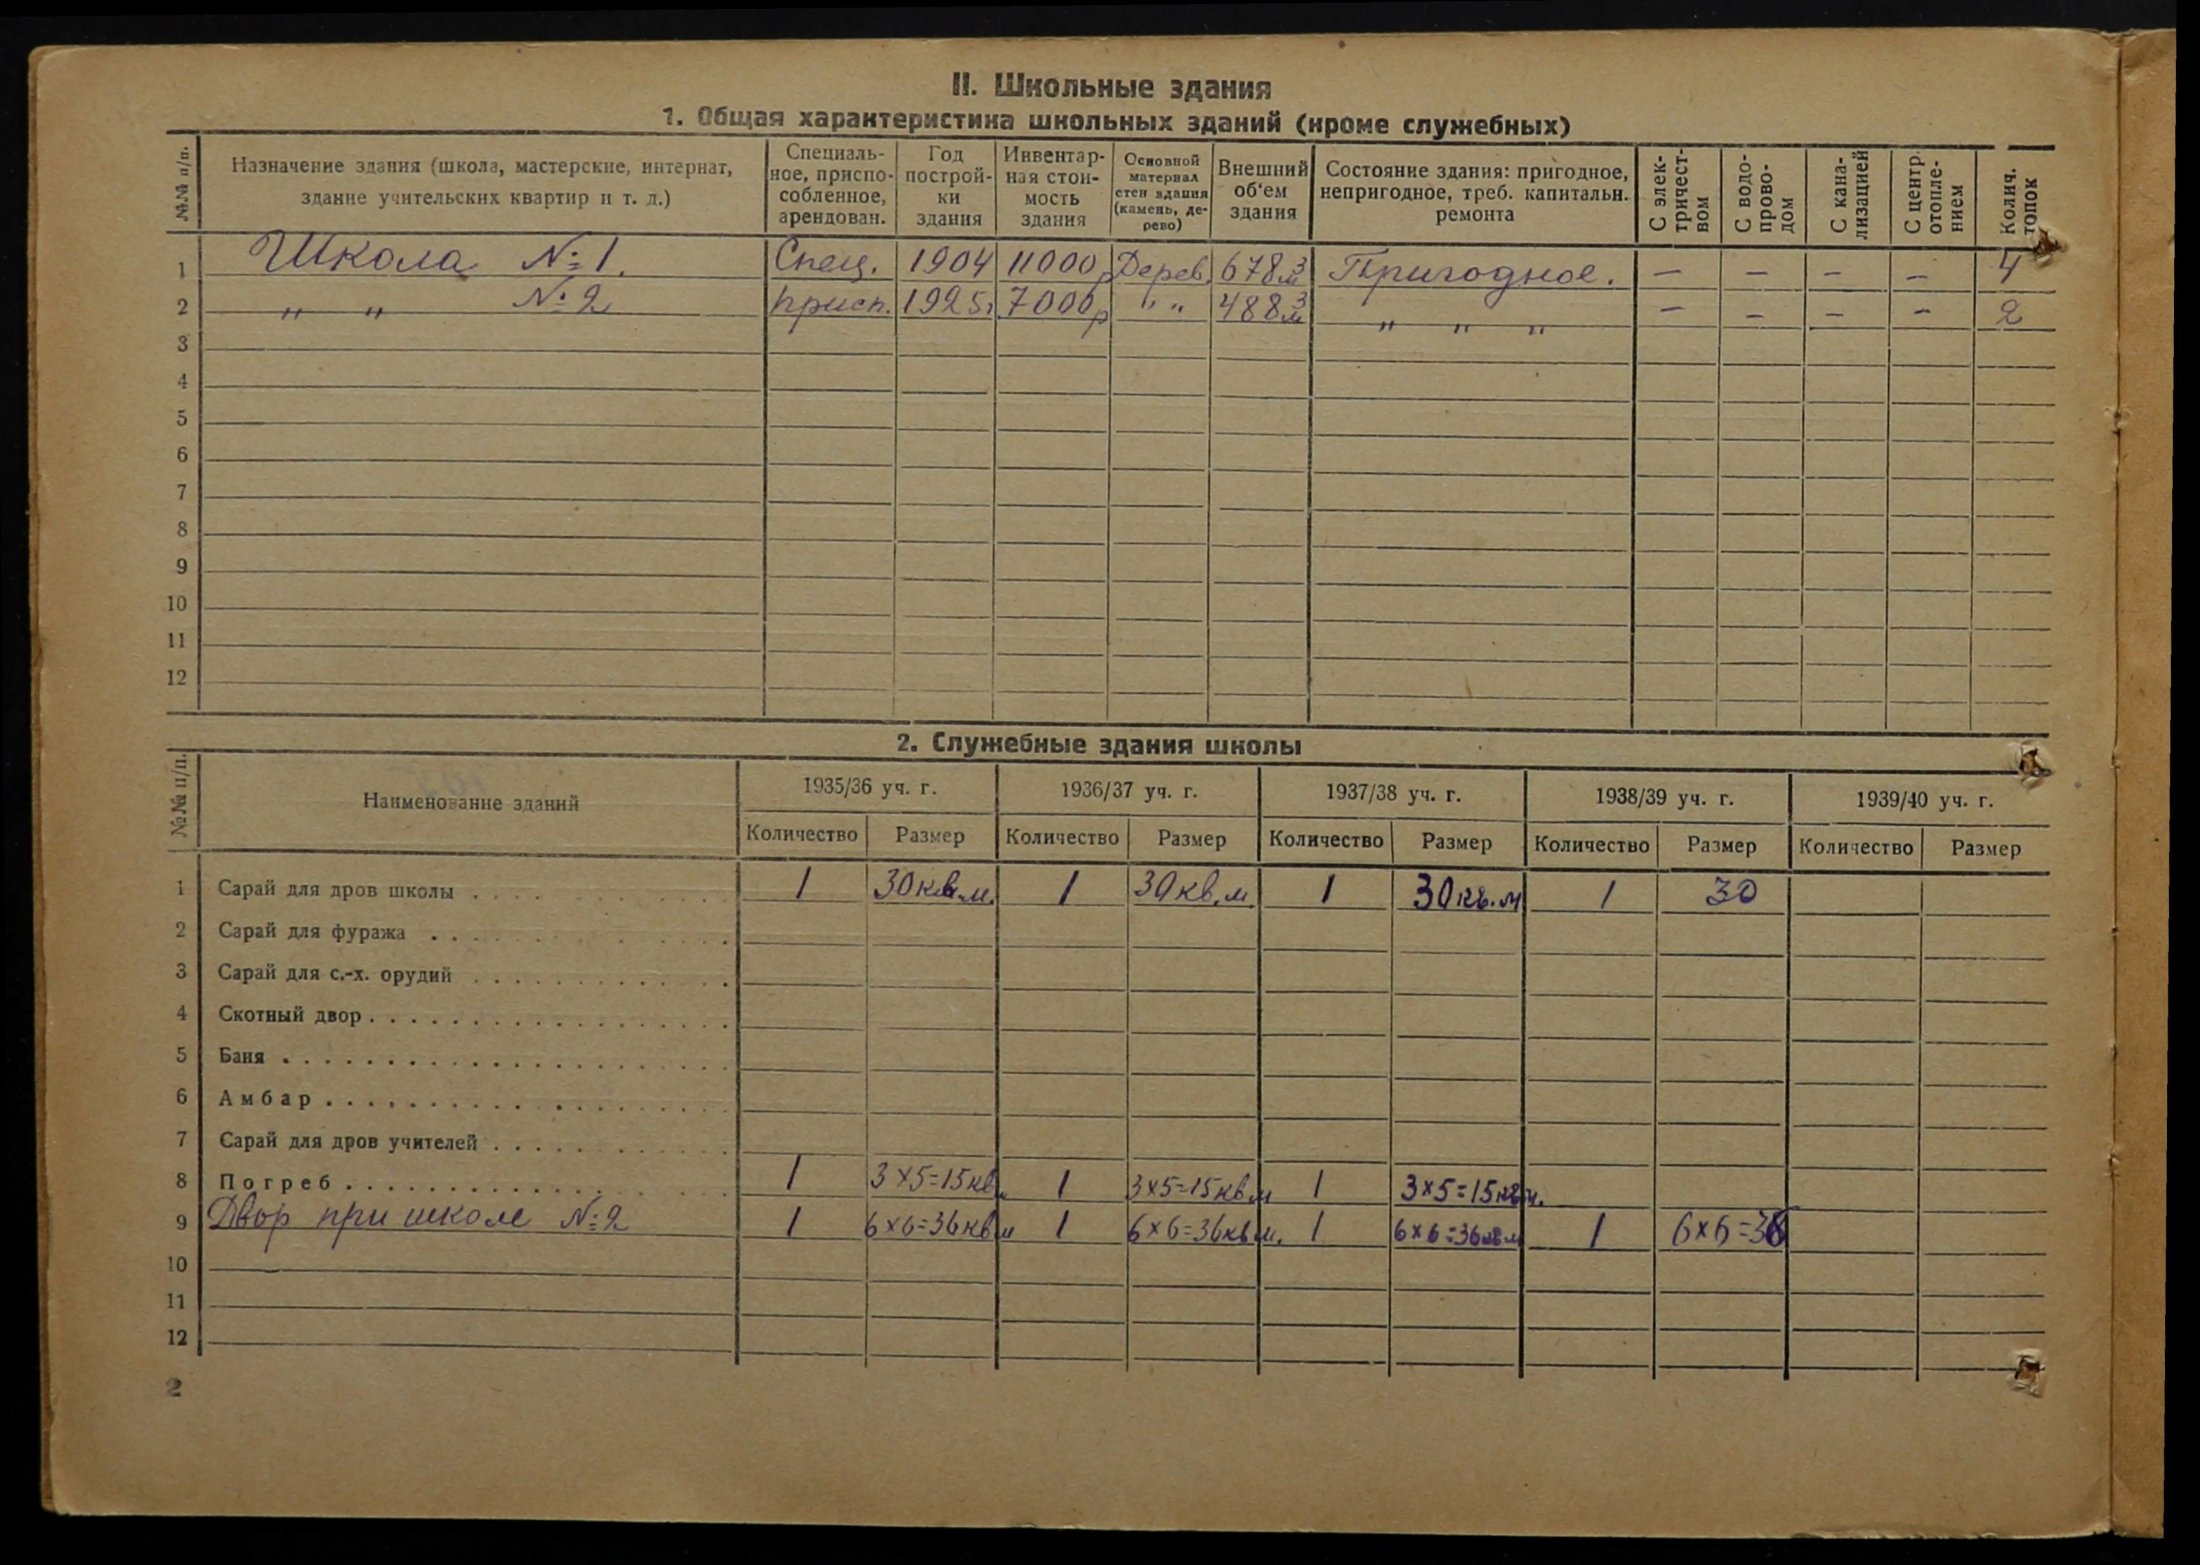 II. Школьные здания
1. Общая характеристика школьных зданий (кроме служебных)
№№ п/п. Назначение здания (школа, мастерские, интернат, здание учительских квартир и т. д.) Специаль-ное, приспо-собленное, арендован. Год построй-ки здания Инвентар-ная стои-мость здания Основной материал стен здания (камень, де-рево) Внешний об'ем здания Состояние здания: пригодное, непригодное, треб. капитальн. ремонта С элек-тричест-вом С водо-прово-дом С кана-лизацией С центр. отопле-нием Колич. топок
1 Школа №1. Спец. 1904 11000р Дерев. 678 м3 Пригодное. — — — — 4
2 " " №2 присп. 1925г 7000р " " 488 м3 " " " — — — — 2
3
4
5
6
7
8
9
10
11
12
2. Служебные здания школы
№№ п/п. Наименование зданий 1935/36 уч. г. 1936/37 уч. г. 1937/38 уч. г. 1938/39 уч. г. 1939/40 уч. г.
Количество Размер Количество Размер Количество Размер Количество Размер Количество Размер
1 Сарай для дров школы 1 30 кв.м. 1 30 кв.м 1 30 кв.м 1 30
2 Сарай для фуража
3 Сарай для с.-х. орудий
4 Скотный двор
5 Баня
6 Амбар
7 Сарай для дров учителей
8 Погреб 1 3×5=15кв 1 3×5=15кв м 1 3×5=15кв м.
9 Двор при школе №2 1 6×6=36кв м 1 6×6=36кв м. 1 6×6=36кв м 1 6×6=36
10
11
12
2